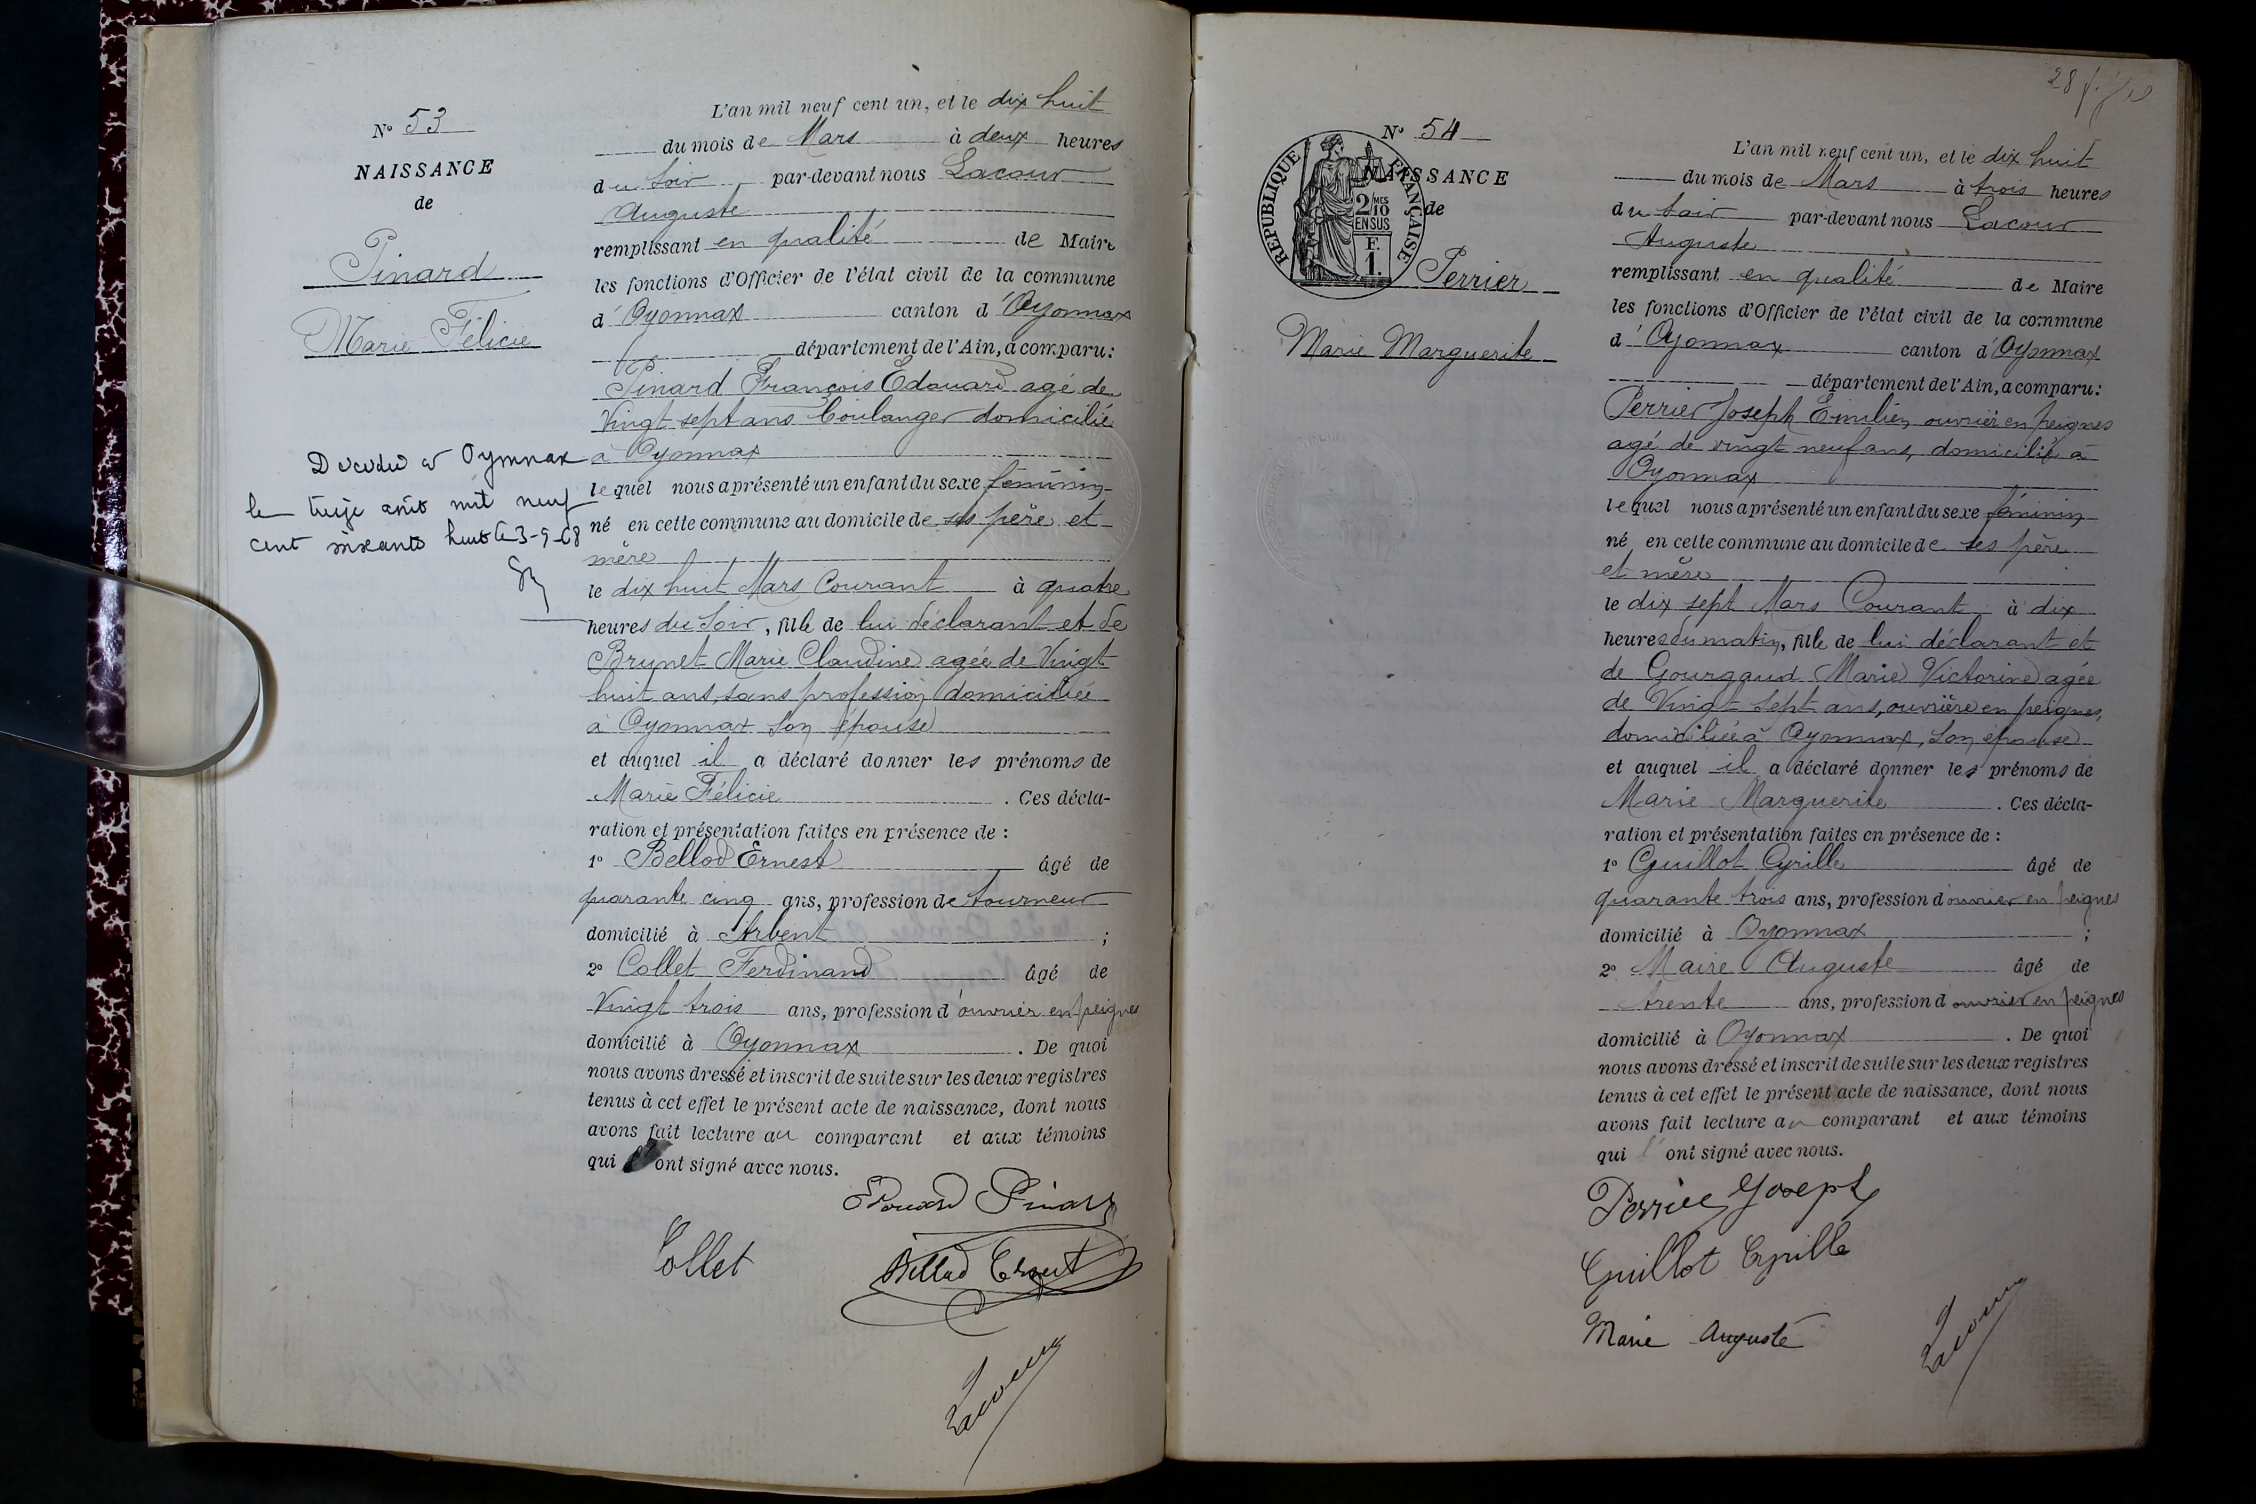 N° 53
NAISSANCE
de
Pinard
Marie Félicie
Décédée à Oyonnax
le treize août mil neuf
cent soixante huit le 3-9-68
L'an mil neuf cent un, et le dix huit
du mois de Mars à deux heures
du soir par-devant nous Lacour
Auguste
remplissant en qualité de Maire
les fonctions d'Officier de l'état civil de la commune
d'Oyonnax canton d'Oyonnax
département de l'Ain, a comparu:
Pinard François Edouard agé de
Vingt sept ans boulanger domicilié
à Oyonnax
lequel nous a présenté un enfant du sexe féminin
né en cette commune au domicile de ses père et
mère
le dix huit Mars Courant à quatre
heures du soir, fille de lui déclarant et de
Brunet Marie Claudine agée de Vingt
huit ans, sans profession domiciliée
à Oyonnax son épouse
et auquel il a déclaré donner les prénoms de
Marie Félicie. Ces décla-
ration et présentation faites en présence de :
1° Bellod Ernest âgé de
quarante cinq ans, profession de tourneur
domicilié à Arbent ;
2° Collet Ferdinand âgé de
Vingt trois ans, profession d'ouvrier en peignes
domicilié à Oyonnax. De quoi
nous avons dressé et inscrit de suite sur les deux registres
tenus à cet effet le présent acte de naissance, dont nous
avons fait lecture au comparant et aux témoins
qui ont signé avec nous.
Edouard Pinard
Collet
Bellod Ernest
Lacour
28
N° 54
NAISSANCE
de
REPUBLIQUE FRANÇAISE
2 MES
10
EN SUS
F.
1.
Perrier
Marie Marguerite
L'an mil neuf cent un, et le dix huit
du mois de Mars à trois heures
du soir par-devant nous Lacour
Auguste
remplissant en qualité de Maire
les fonctions d'Officier de l'état civil de la commune
d'Oyonnax canton d'Oyonnax
département de l'Ain, a comparu:
Perrier Joseph Emilien, ouvrier en peignes
agé de vingt neuf ans, domicilié à
Oyonnax
lequel nous a présenté un enfant du sexe féminin
né en cette commune au domicile de ses père
et mère
le dix sept Mars Courant à dix
heures du matin, fille de lui déclarant et
de Gourgaud Marie Victorine agée
de Vingt sept ans, ouvrière en peignes,
domiciliée à Oyonnax, son épouse
et auquel il a déclaré donner les prénoms de
Marie Marguerite. Ces décla-
ration et présentation faites en présence de :
1° Guillot Cyrille âgé de
quarante trois ans, profession d'ouvrier en peignes
domicilié à Oyonnax ;
2° Maire Auguste âgé de
trente ans, profession d'ouvrier en peignes
domicilié à Oyonnax. De quoi
nous avons dressé et inscrit de suite sur les deux registres
tenus à cet effet le présent acte de naissance, dont nous
avons fait lecture au comparant et aux témoins
qui ont signé avec nous.
Perrier Joseph
Guillot Cyrille
Maire Auguste
Lacour